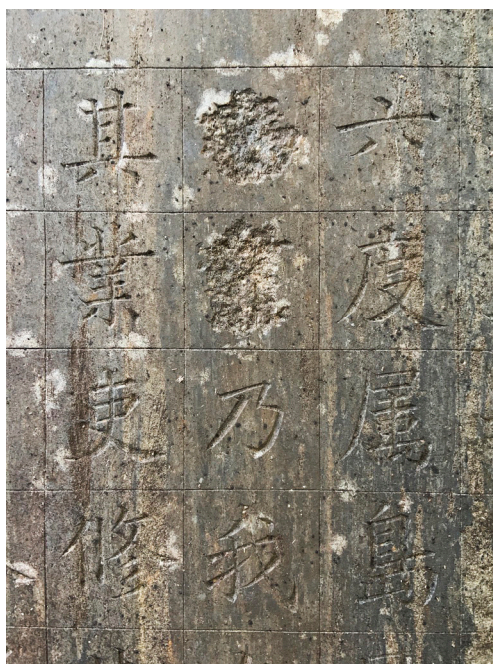 六度属
乃我
其業吏修